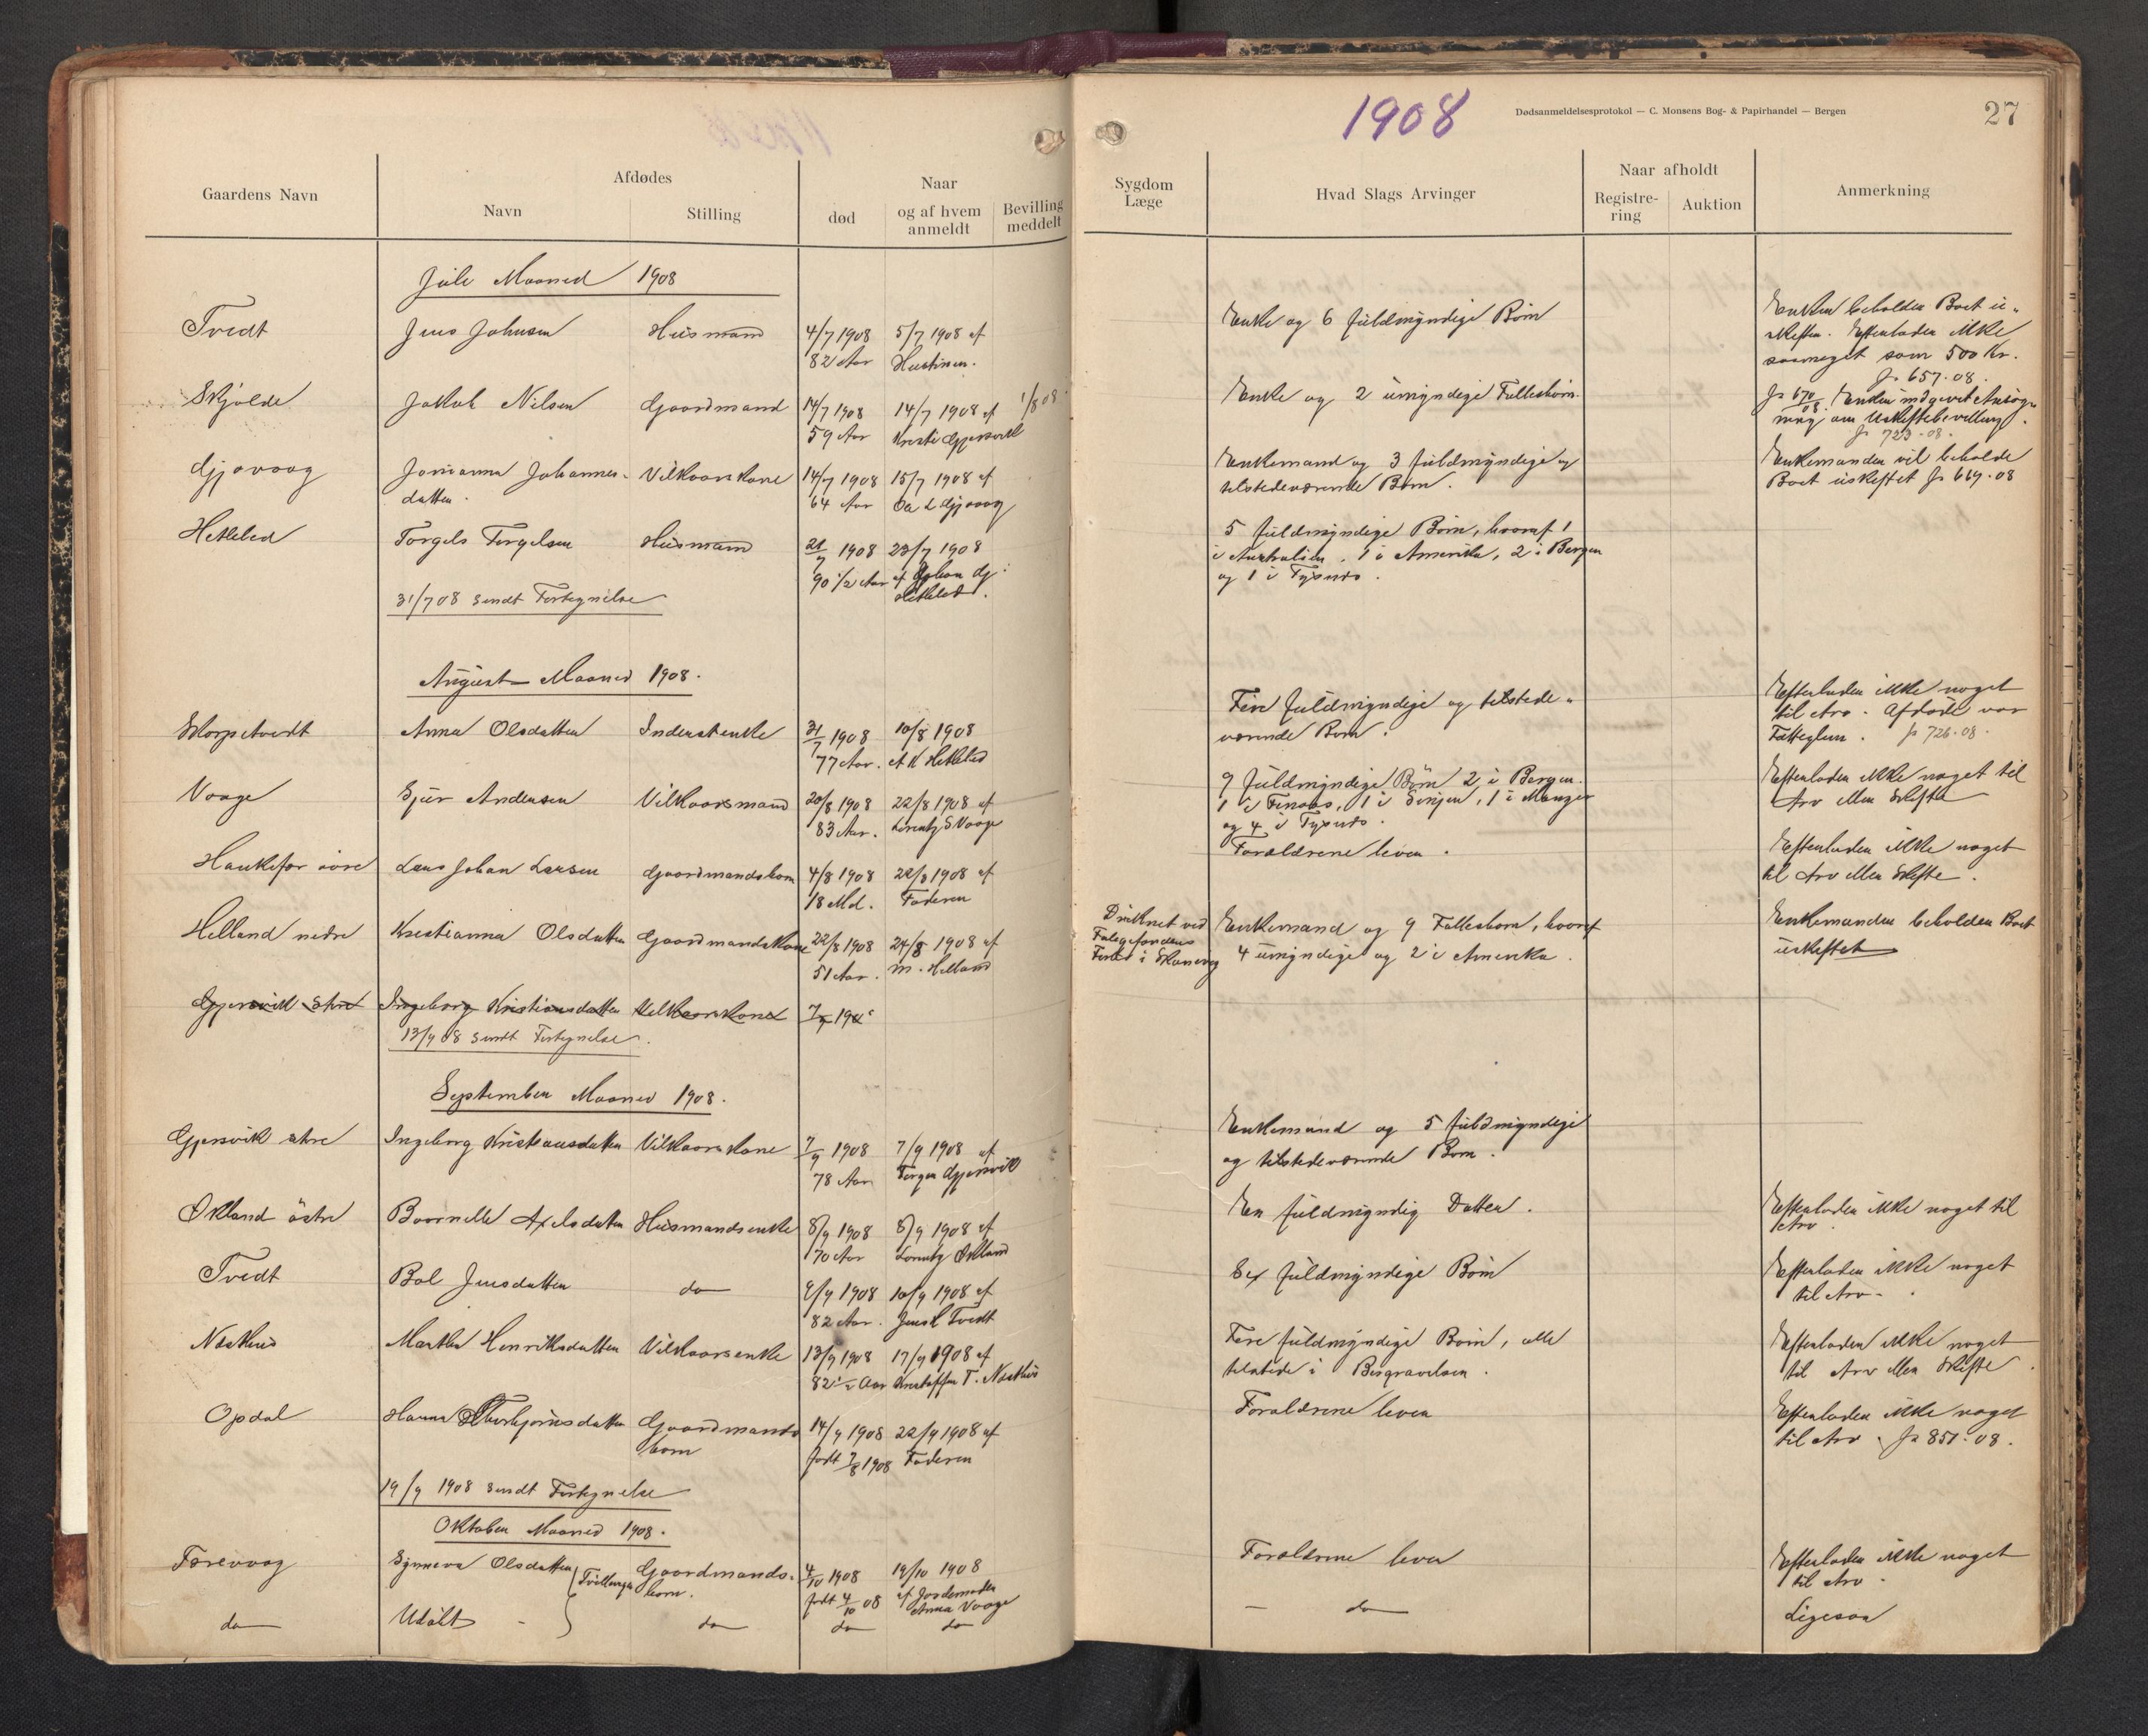 1908
Dødsanmeldelsesprotokol — C. Monsens Bog- & Papirhandel — Bergen
27
Gaardens Navn
Afdødes
Navn
Stilling
Naar
død
og af hvem anmeldt
Bevilling meddelt
Sygdom
Læge
Hvad Slags Arvinger
Naar afholdt
Registrering
Auktion
Anmerkning
Juli Maaned 1908
Tvedt Jens Johnsen Husmand 4/7 1908 5/7 1908 af Enke og 6 fuldmyndige Børn Enken beholder Boet u-
82 Aar Hustruen. skiftet. Efterlader ikke
saameget som 500 Kr.
Jr 657.08.
Skjolde Jakob Nilsen Gaardmand 14/7 1908 14/7 1908 af 1/8 08 Enke og 2 umyndige Fællesbørn. Jr 670/08. Enken indgivet Ansøg
59 Aar Gjersvik ning om Uskiftebevilling.
Jr 723.08.
Gjøvaag Johannes- Vilkaarskone 14/7 1908 15/7 1908 af Enkemand og 3 fuldmyndige og Enkemanden vil beholde
datter. 64 Aar Ola L Gjøvaag tilstedeværende Børn. Boet uskiftet Jr 669.08
Hetleled Torgels Torgelsen Husmand 21/7 1908 23/7 1908 5 fuldmyndige Børn, hvoraf 1
90 1/2 Aar af Johan Gj. i Australien, 1 i Amerika, 2 i Bergen
Hetleled. og 1 i Tysnes.
31/7 08 sendt Fortegnelse
August Maaned 1908.
Skorpetvedt Anna Olsdatter Inderstenke 31/7 1908 10/8 1908 Fire fuldmyndige og tilstede- Efterlader ikke noget
77 Aar. A K Hetleled værende Børn. til Arv. Afdøde var
Fattiglem. Jr 726.08.
Vaage Sjur Andersen Vilkaarsmand 20/8 1908 22/8 1908 af 9 fuldmyndige Børn 2 i Bergen. Efterlader ikke noget til
83 Aar. Lorentz S Vaage 1 i Finaas, 1 i Senjen, 1 i Manger Arv eller Skifte
og 4 i Tysnes.
Haukefær øvre Lars Johan Larsen Gaardmandsbarn 4/8 1908 22/8 1908 af Forældrene lever. Efterlader ikke noget
18 Md. Faderen til Arv eller Skifte.
Helland nedre Kristianna Olsdatter Gaardmandskone 22/8 1908 24/8 1908 af Druknet ved Enkemand og 9 Fællesbørn, hvoraf Enkemanden beholder Boet
51 Aar. M. Helland Forlis i Skonevig 4 umyndige og 2 i Amerika. uskiftet
Gjersvik Ingeborg Kristiansdatter Vilkaarskone 7/9 190
13/9 08 sendt Fortegnelse.
September Maaned 1908.
Gjersvik Ingeborg Kristiansdatter Vilkaarskone 7/9 1908 7/9 1908 af Enkemand og 5 fuldmyndige
78 Aar Torger Gjersvik og tilstedeværende Børn.
Økland østre Axelsdatter Husmandsenke 8/9 1908 8/9 1908 af En fuldmyndig Datter. Efterlader ikke noget til
70 Aar Lorentz Økland Arv.
Tvedt Bol Jensdatter do 9/9 1908 10/9 1908 af Sex fuldmyndige Børn Efterlader ikke noget
82 Aar. Jens L Tvedt til Arv.
Næshus Martha Henriksdatter Vilkaarsenke 13/9 1908 17/9 1908 af Fire fuldmyndige Børn, alle Efterlader ikke noget
82 1/2 Aar Kristoffer T. Næshus tilstede i Begravelsen. til Arv eller Skifte.
Opdal Hanna Thorbjørnsdatter Gaardmands 14/9 1908 22/9 1908 af Forældrene lever Efterlader ikke noget
barn født 7/8 1908 Faderen til Arv. Jr 851.08.
19/9 1908 sendt Fortegnelse
Oktober Maaned 1908.
Færevaag Synneva Olsdatter Tvillinger Gaardmands- 4/10 1908 19/10 1908 Forældrene lever Efterlader ikke noget
barn. født 4/10 08 af Jordemoder til Arv.
Anna Vaage
do Udøbt do do do do Ligesaa